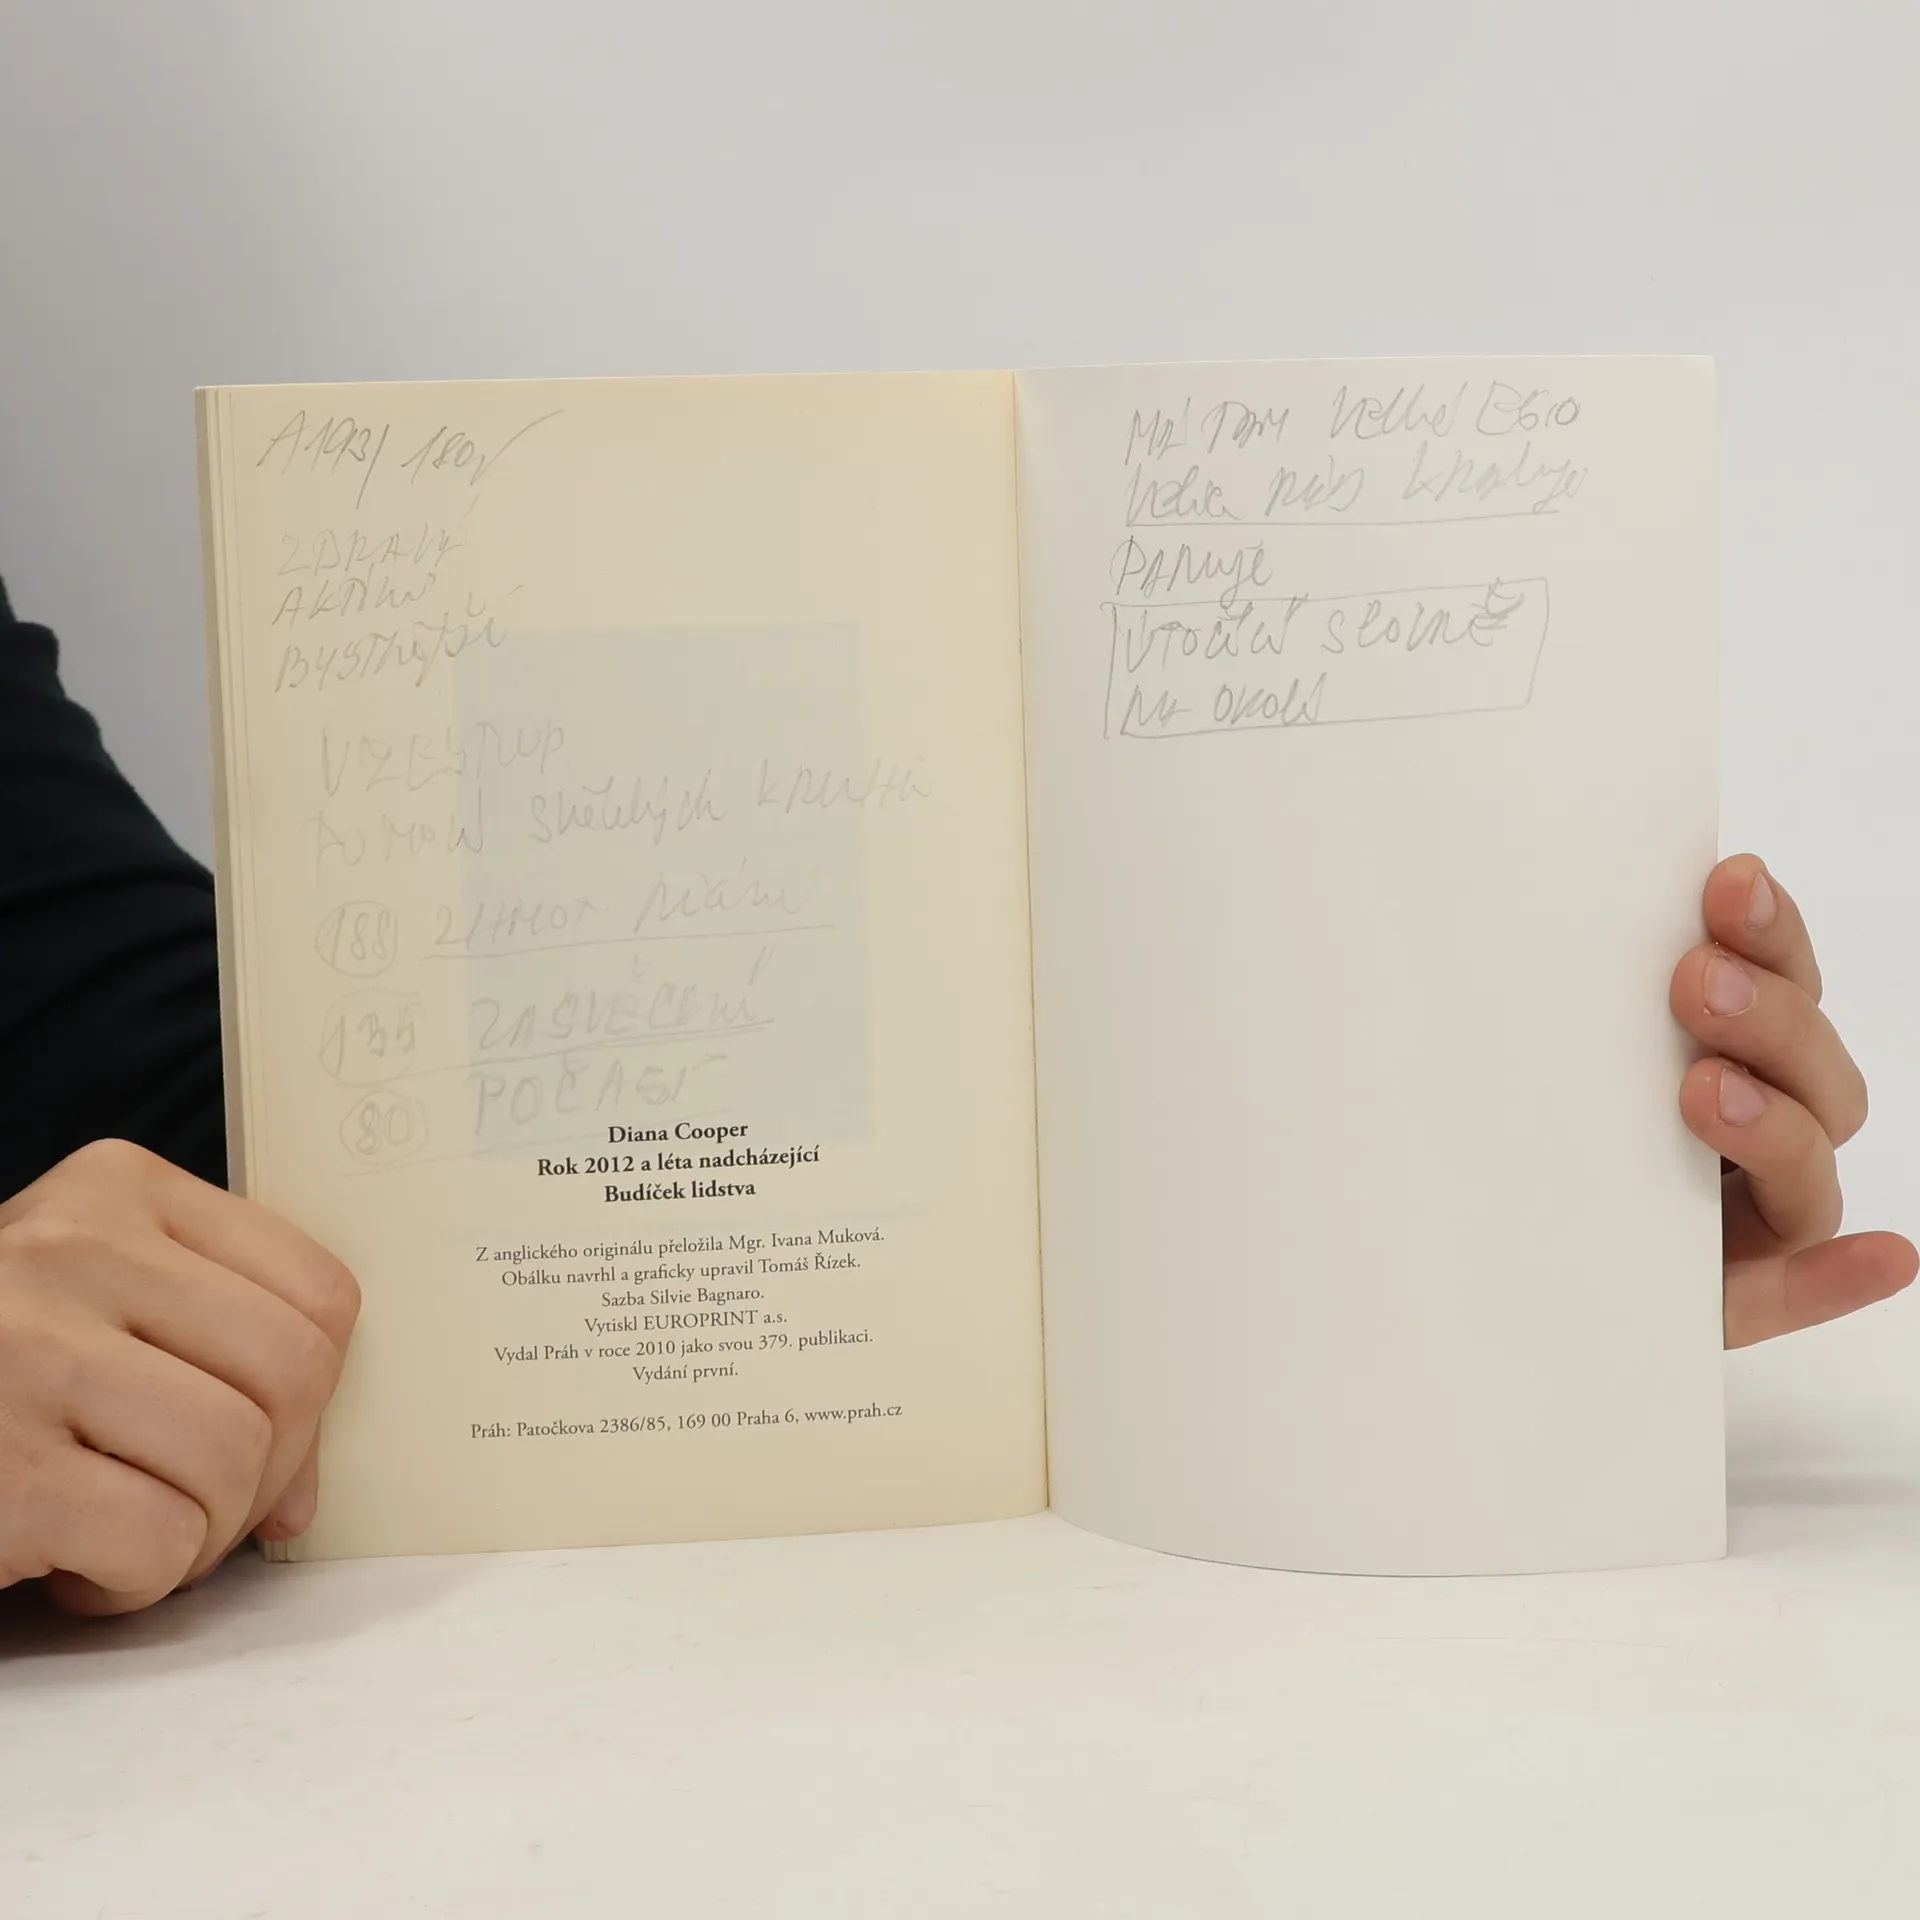 A193/ 180
ZDRAVÝ
AKTIVNÍ
BYSTŘEJŠÍ
VZESTUP
POMOCÍ Světelných KRUHŮ
188 ZHMOT. PŘÁNÍ
135 ZASVĚCENÍ
80 POČASÍ
Diana Cooper
Rok 2012 a léta nadcházející
Budíček lidstva
Z anglického originálu přeložila Mgr. Ivana Muková.
Obálku navrhl a graficky upravil Tomáš Řízek.
Sazba Silvie Bagnaro.
Vytiskl EUROPRINT a.s.
Vydal Práh v roce 2010 jako svou 379. publikaci.
Vydání první.
Práh: Patočkova 2386/85, 169 00 Praha 6, www.prah.cz
MÁ TAM Velké EGO
kraluje
PANUJE
ÚTOČÍ SLOVNĚ
NA OKOLÍ